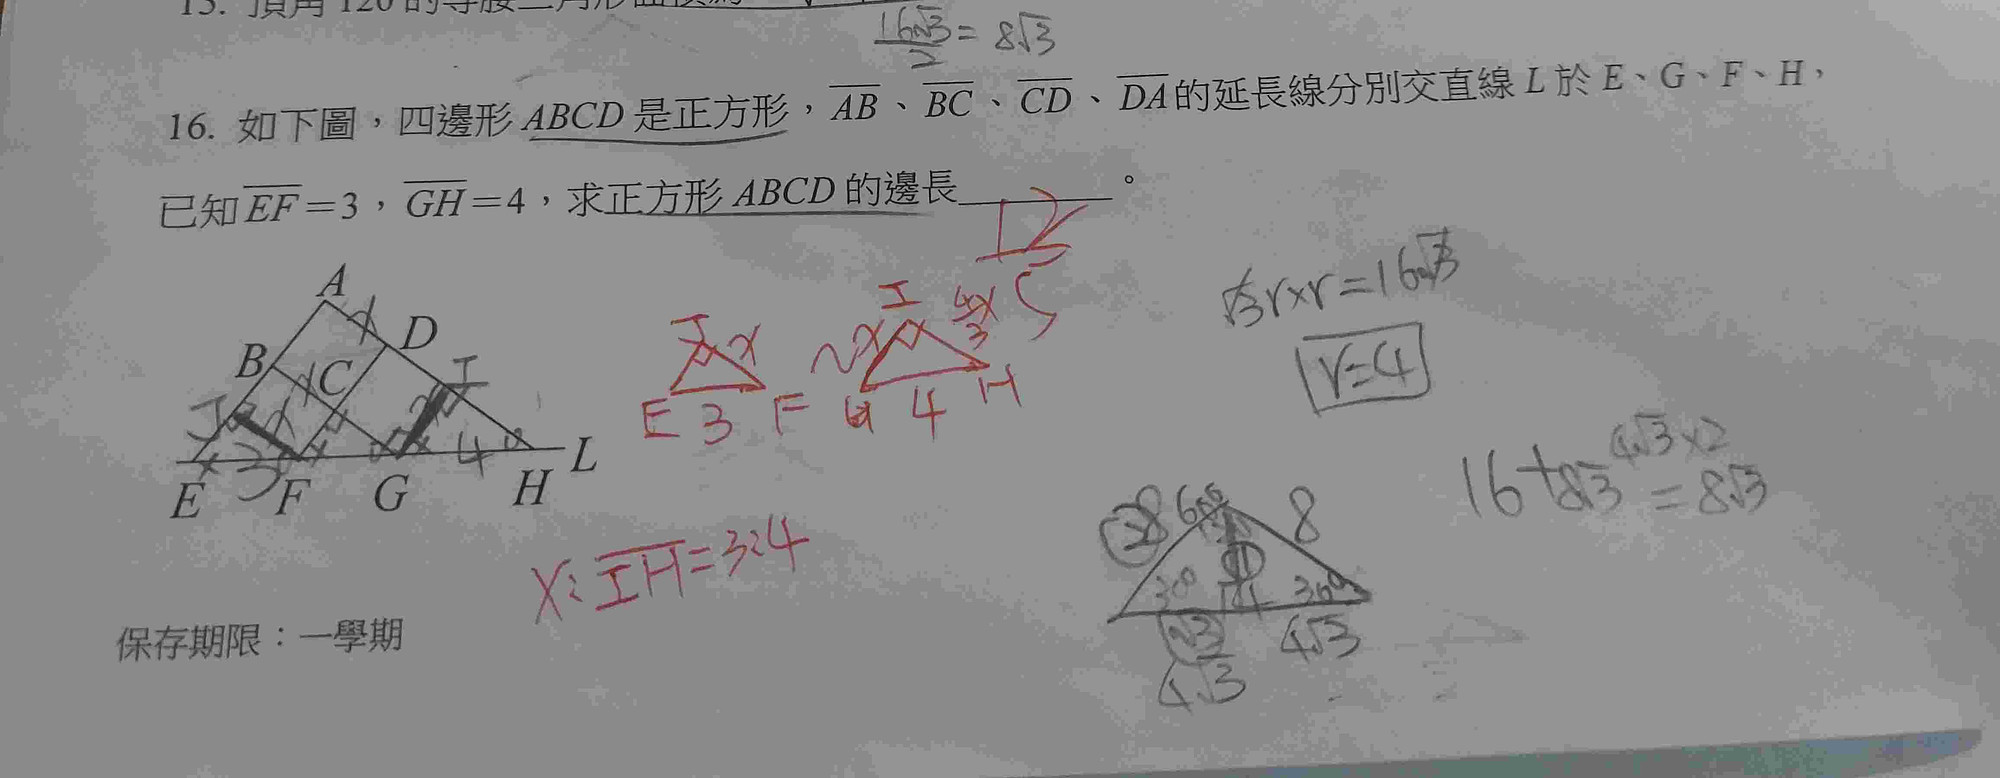 15. 頂角 120 的等腰三角形面積為
16√3/2 = 8√3
16. 如下圖，四邊形 ABCD 是正方形，AB、BC、CD、DA的延長線分別交直線 L 於 E、G、F、H，
已知EF=3，GH=4，求正方形 ABCD 的邊長______。
12
5
A
x
D
B
x
C
I
J
x
x
x
3
4
L
E
F
G
H
J
x
E 3 F
I
x
4x/3
G 4 H
x:IH=3:4
√3r×r=16√3
r=4
4√3×2
16+8√3 = 8√3
2
8
60°
8
30°
30°
4√3
4√3
保存期限：一學期